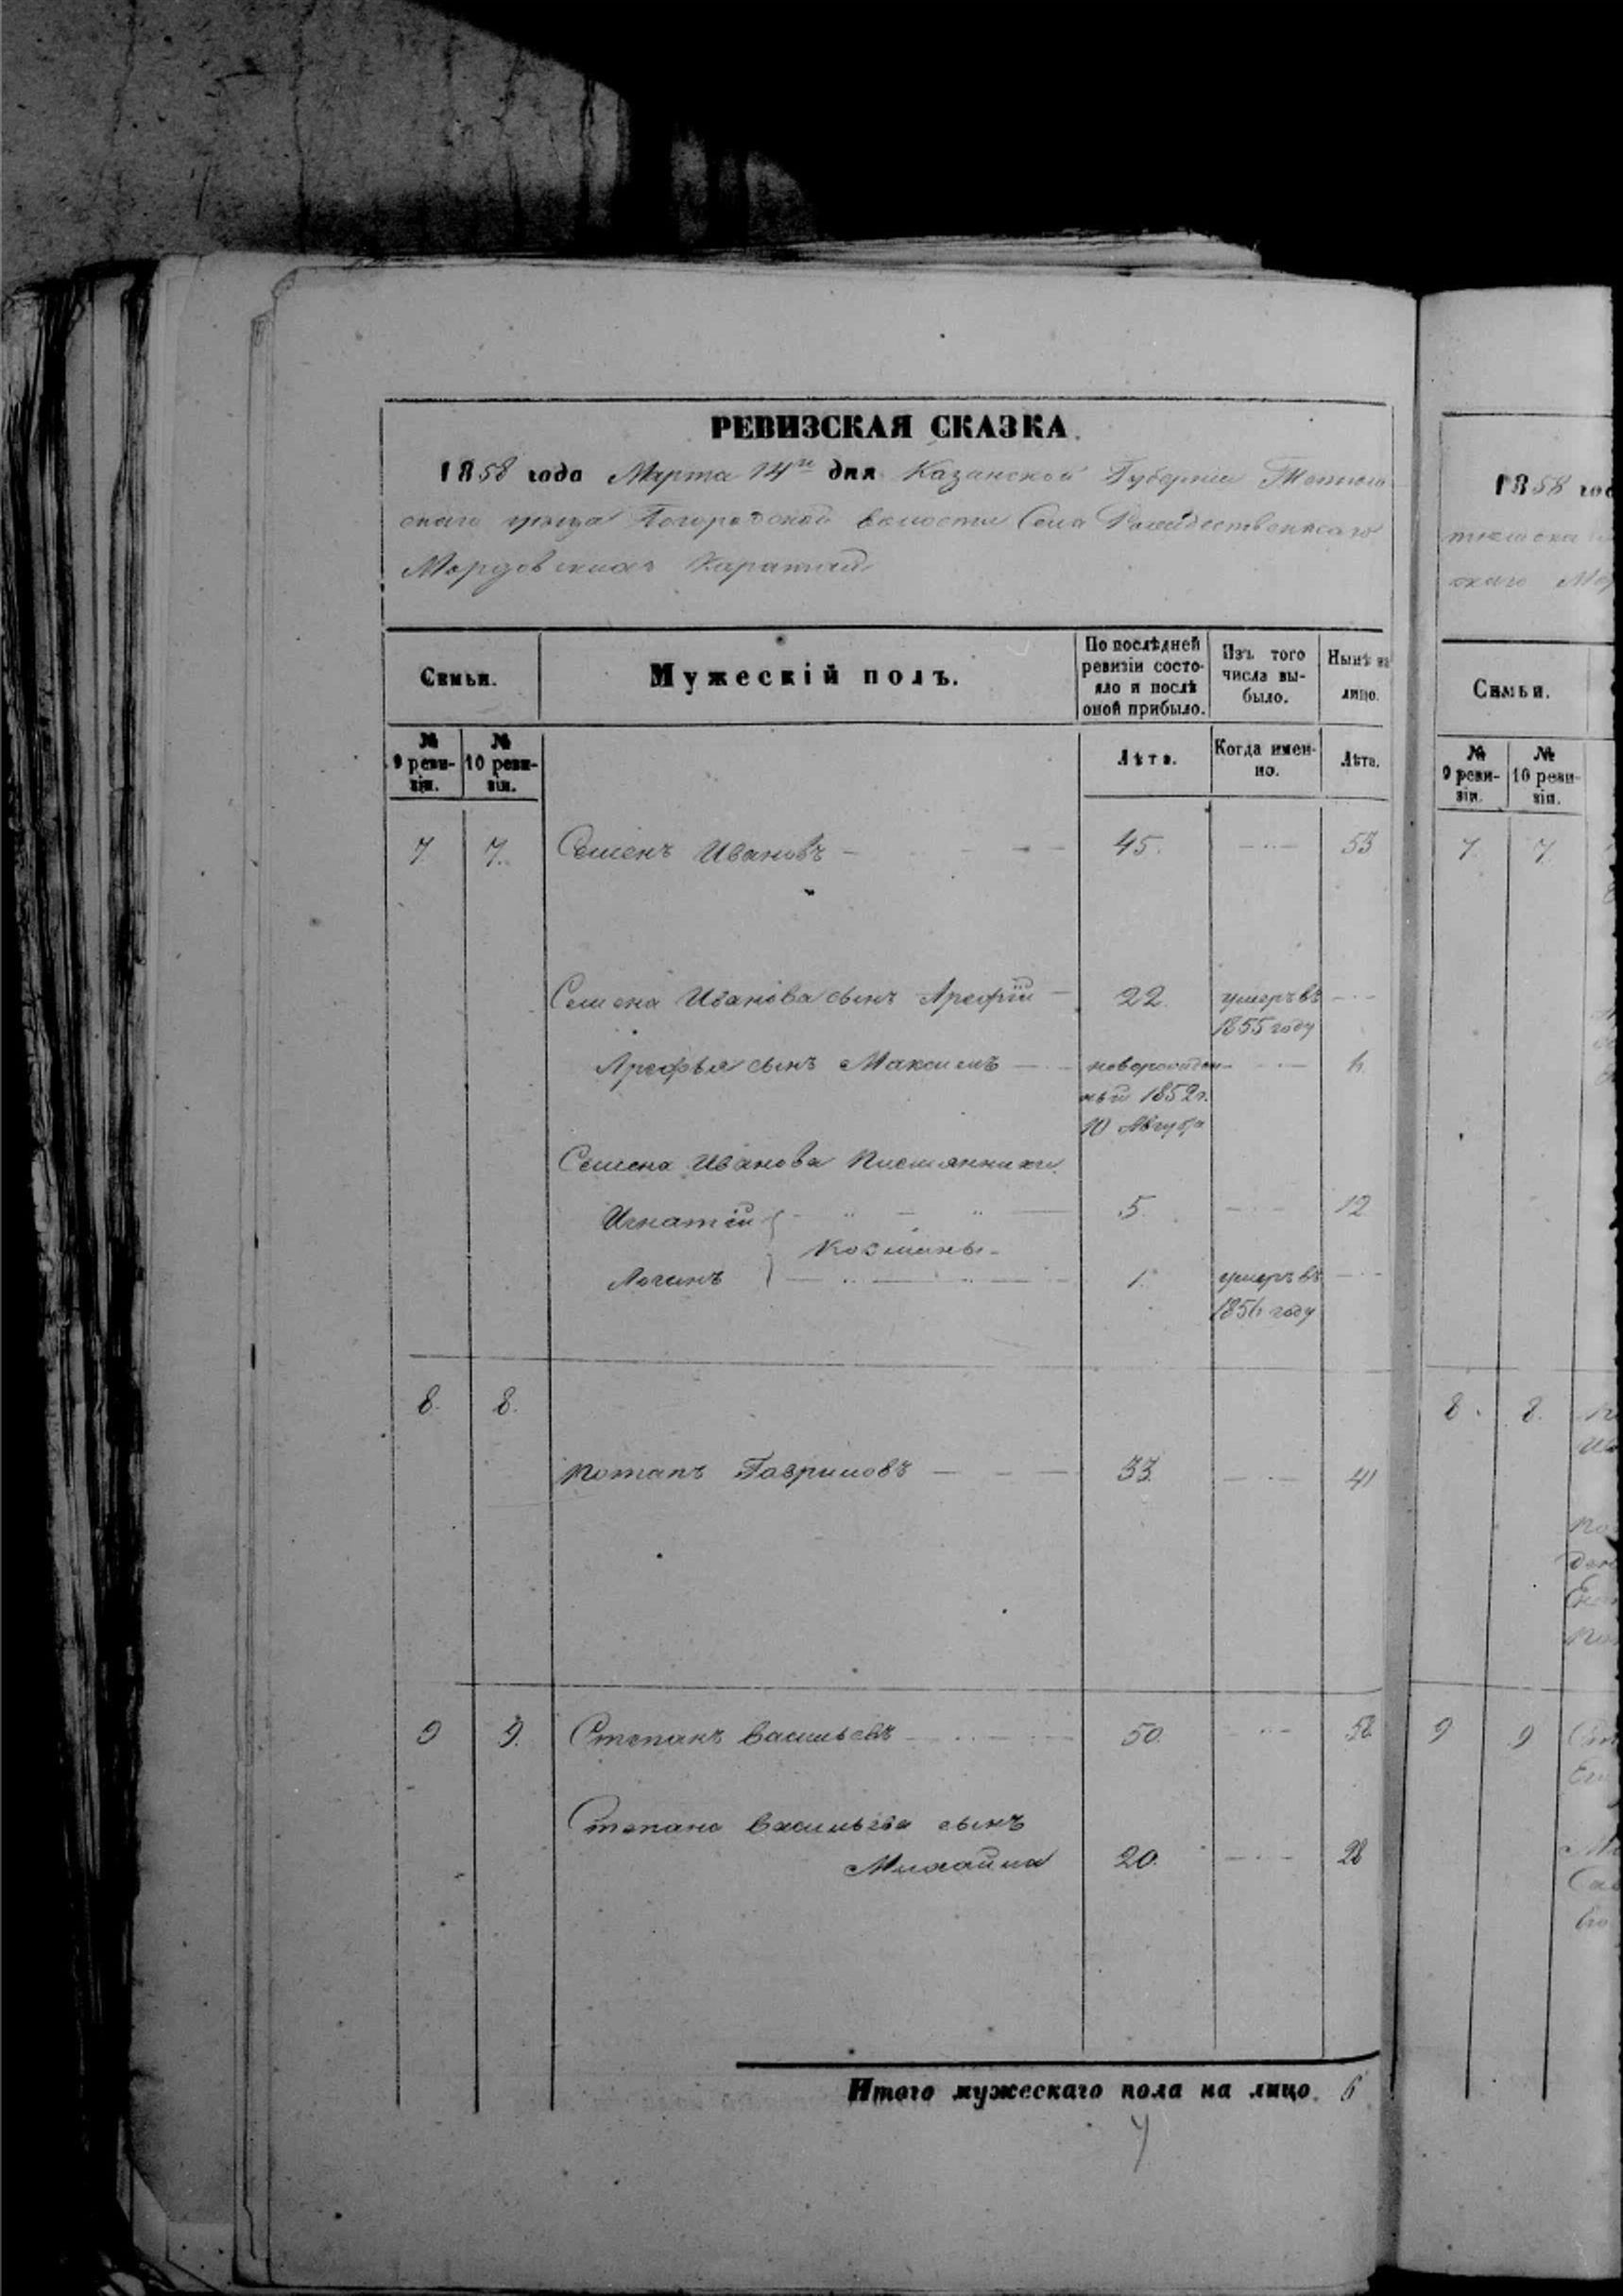 РЕВИЗСКАЯ СКАЗКА.
1858 года Марта 14го дня Казанской Губернии Тетюш-
скаго уезда Богородской волости Села Рождественскаго
Мордовских Каратай
Семьи.
Мужескій полъ.
По послѣдней ревизіи состо-
яло и послѣ оной прибыло.
Изъ того числа вы-
было.
Нынѣ на лицо.
№ 9 реви-
зіи.
№ 10 реви-
зіи.
Лѣта.
Когда имен-
но.
Лѣта.
7 7. Семенъ Ивановъ 45. 53
Семена Иванова сынъ Арефій 22. умеръ въ
1855 году
Арефья сынъ Максимъ новорожден-
ный 1852 г.
10 Августа
Семена Иванова племянники
Игнатій 5. 12
Козмины
Логинъ 1. умеръ въ
1856 году
8. 8.
Потапъ Гавриловъ 33. 41
9 9. Степанъ Васильевъ 50. 58
Степана Васильева сынъ
Михайла 20. 28
Итого мужескаго пола на лицо. 6
1858 год
Семьи.
№ 9 реви-
зіи.
№ 10 реви-
зіи.
7. 7
8. 8.
9 9